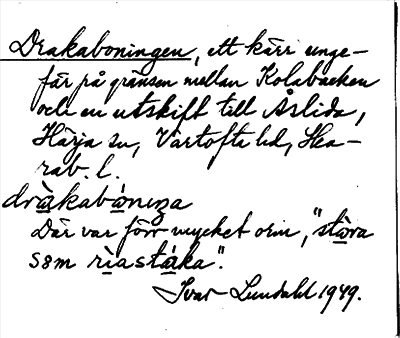 Drakaboningen, ett kärr unge-
fär på gränsen mellan Kolabacken
och en utskift till Åslida,
Härja sn, Vartofta hd, Ska-
rab. l.
dràkabóninga
Där var förr mycket orm, "stòra
som rìastáka".
Ivar Lundahl 1949.